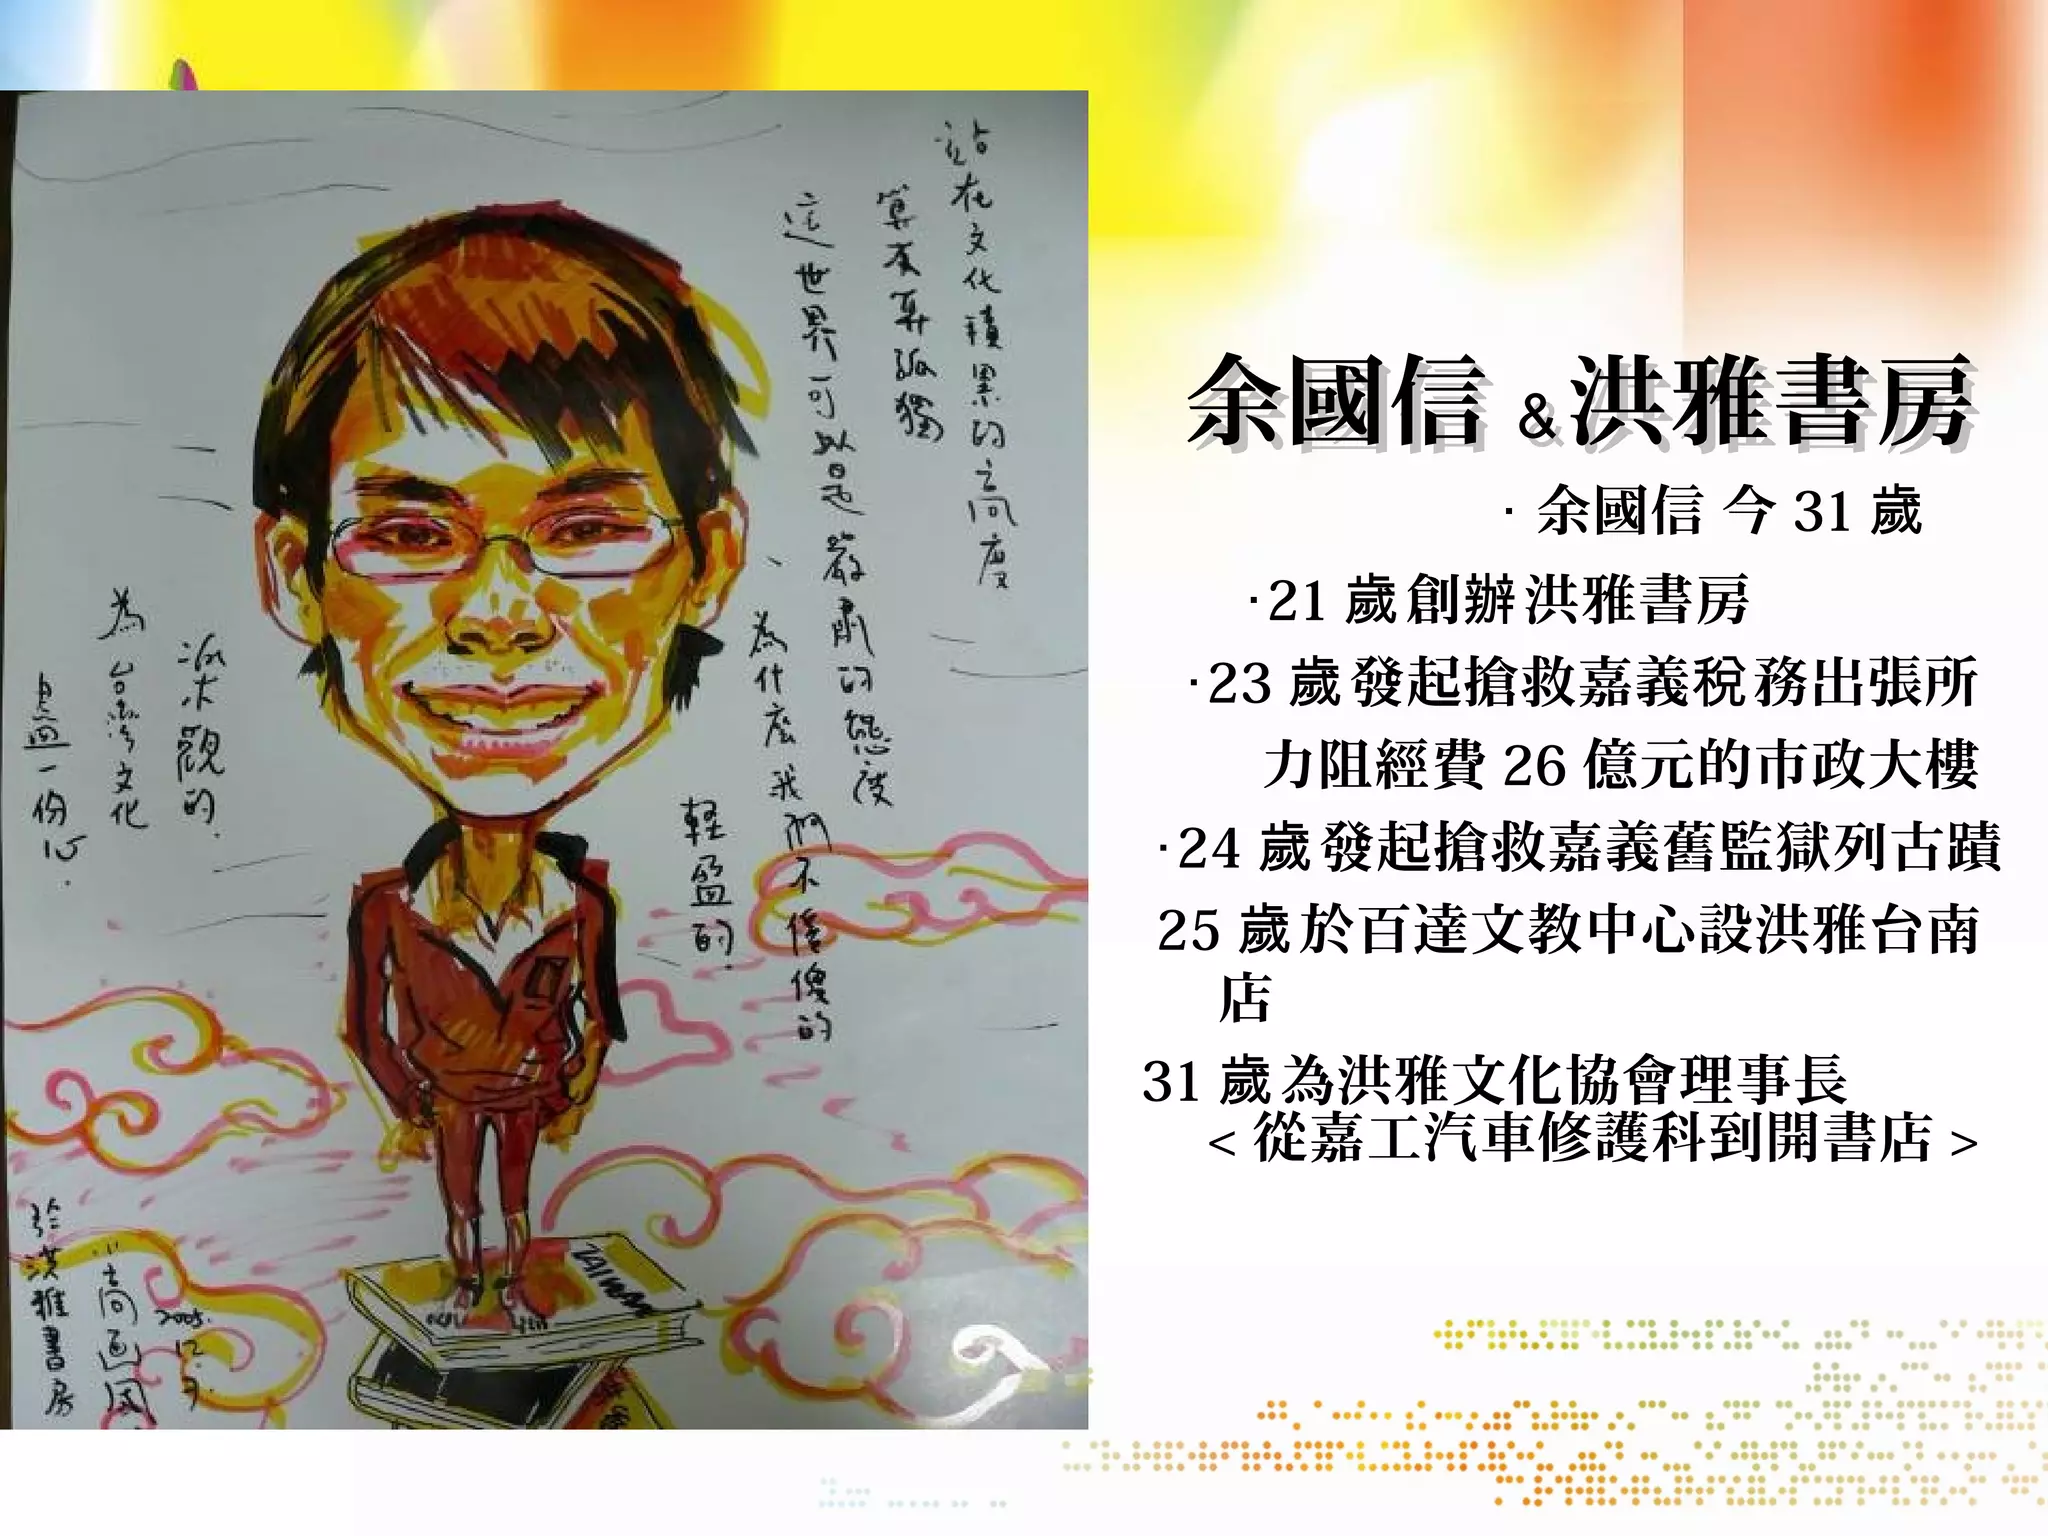 站在文化積累的高度
算不算孤獨
這世界可以是嚴肅的態度
、為什麼我們不傻傻的
輕盈的.
樂觀的.
為台灣文化
盡一份心.
於洪雅書房
小高画图
2005.
12.
TAIWAN
余國信 &洪雅書房
· 余國信 今 31 歲
·21 歲創辦洪雅書房
·23 歲發起搶救嘉義稅務出張所
力阻經費 26 億元的市政大樓
·24 歲發起搶救嘉義舊監獄列古蹟
25 歲於百達文教中心設洪雅台南
店
31 歲為洪雅文化協會理事長
< 從嘉工汽車修護科到開書店 >